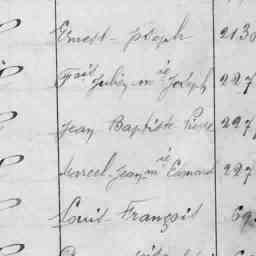 Ernest-Joseph 213
Fois Julien mie Joseph 227
Jean Baptiste Pierre 227
Marcel-Jean mie Edmond 227
Louis-François 69